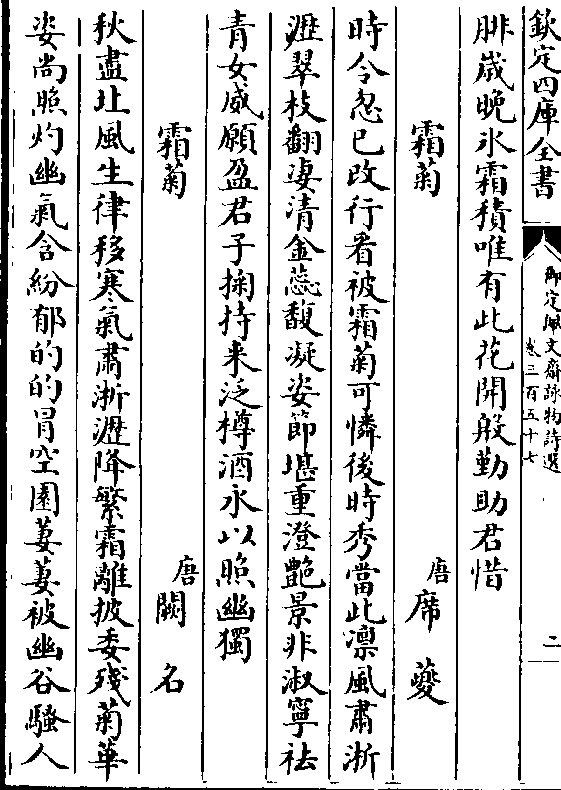 欽定四庫全書
御定佩文齋詠物詩選
卷三百五十七
二
腓歲晚氷霜積唯有此花開殷勤助君惜
霜菊 唐 席夔
時令忽已改行看被霜菊可憐後時秀當此凛風肅淅
瀝翠枝翻凄清金蕊馥凝姿節堪重澄艷景非淑寧袪
青女威願盈君子掬持来泛樽酒永以照幽獨
霜菊 唐 闕名
秋盡北風生律移寒氣肅淅瀝降繁霜離披委殘菊華
姿尚照灼幽氣含紛郁的的冐空園萋萋被幽谷騷人